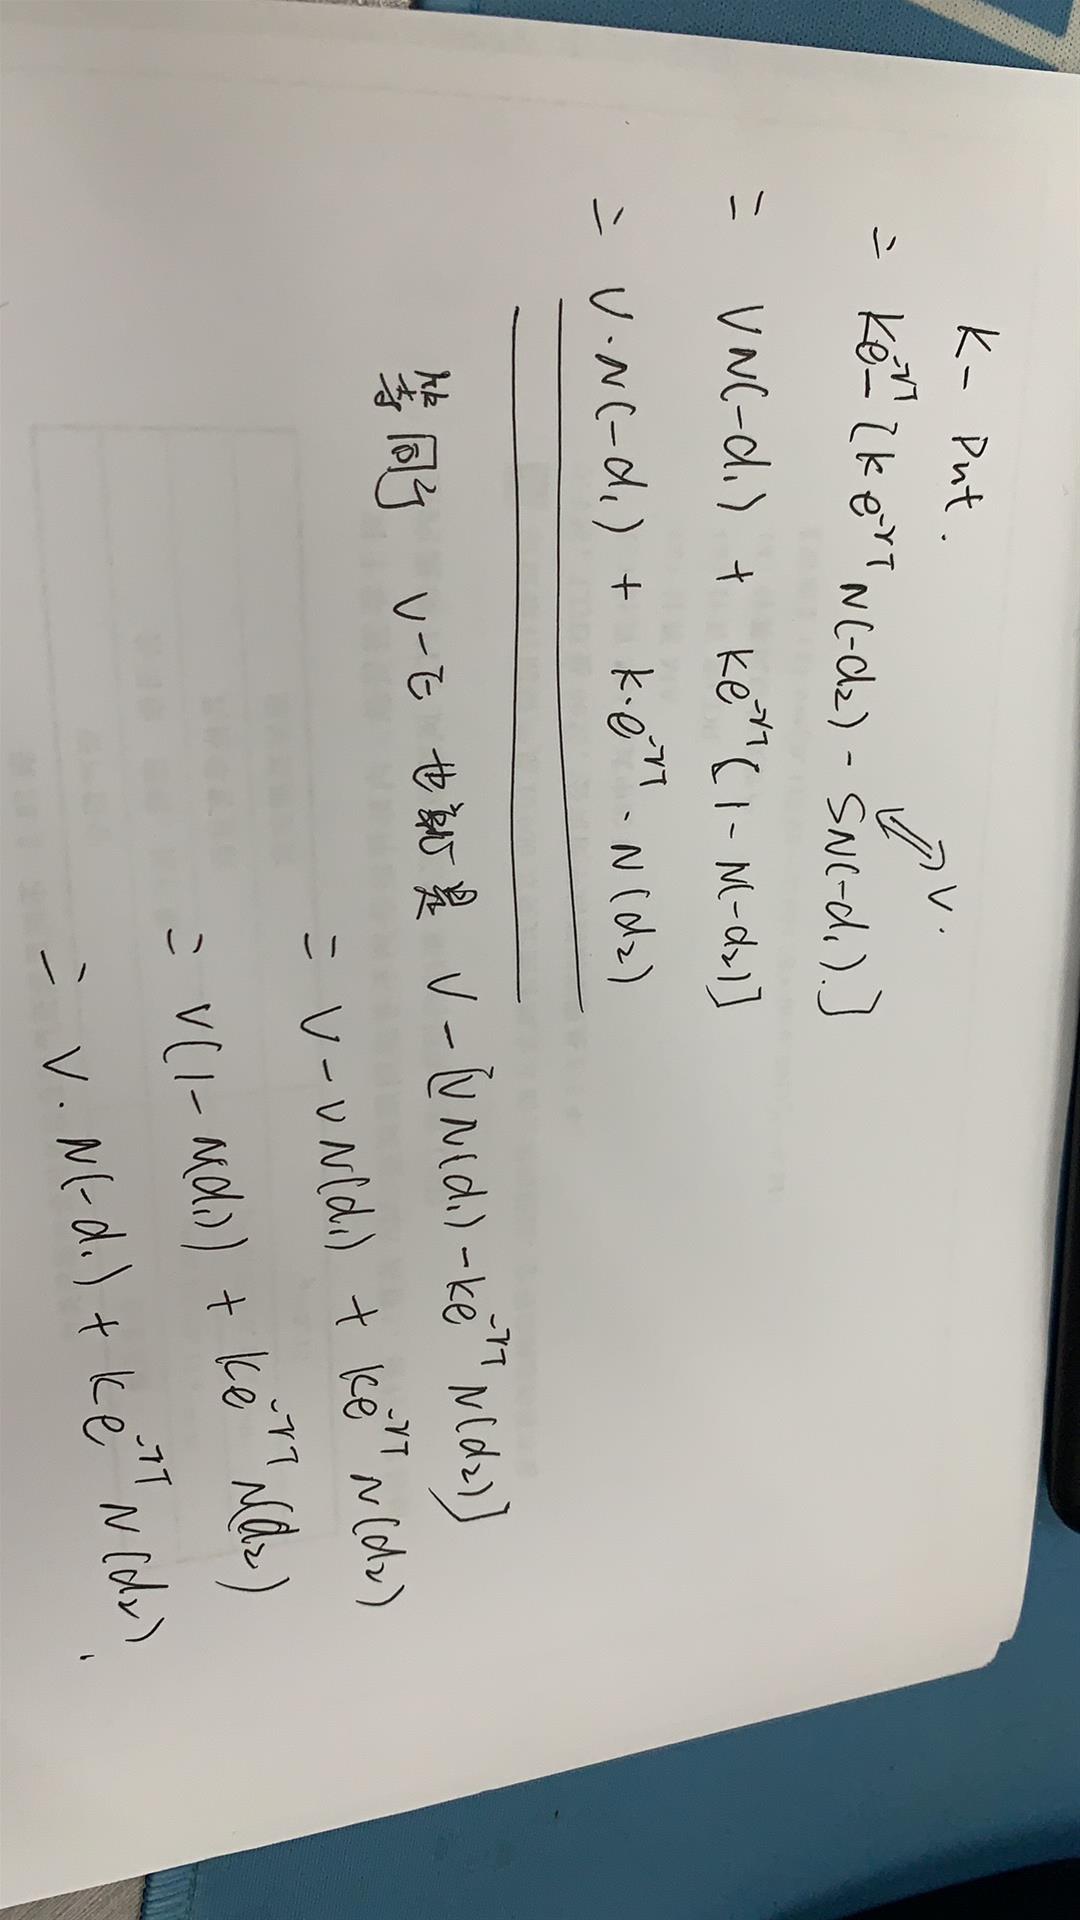 K - Put.
= Ke^-rT - [Ke^-rT N(-d₂) - SN(-d₁).] ⇒ V.
= VN(-d₁) + Ke^-rT (1 - N(-d₂)]
= V·N(-d₁) + K·e^-rT · N(d₂)
等同于 V-E 也就是 V - [VN(d₁) - Ke^-rT N(d₂)]
= V - VN(d₁) + Ke^-rT N(d₂)
= V(1 - N(d₁)) + Ke^-rT N(d₂)
= V·N(-d₁) + Ke^-rT N(d₂).